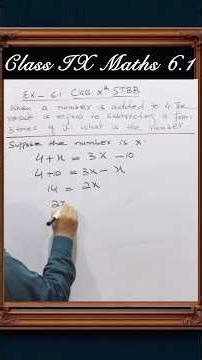 Class IX Maths 6.1
Ex- 6.1 Class Xth STBB
When a number is added to 4 the
result is equal to subtracting 
3 times of it what is the number
Suppose the number is x.
4 + x = 3x - 10
4 + 10 = 3x - x
14 = 2x
2x